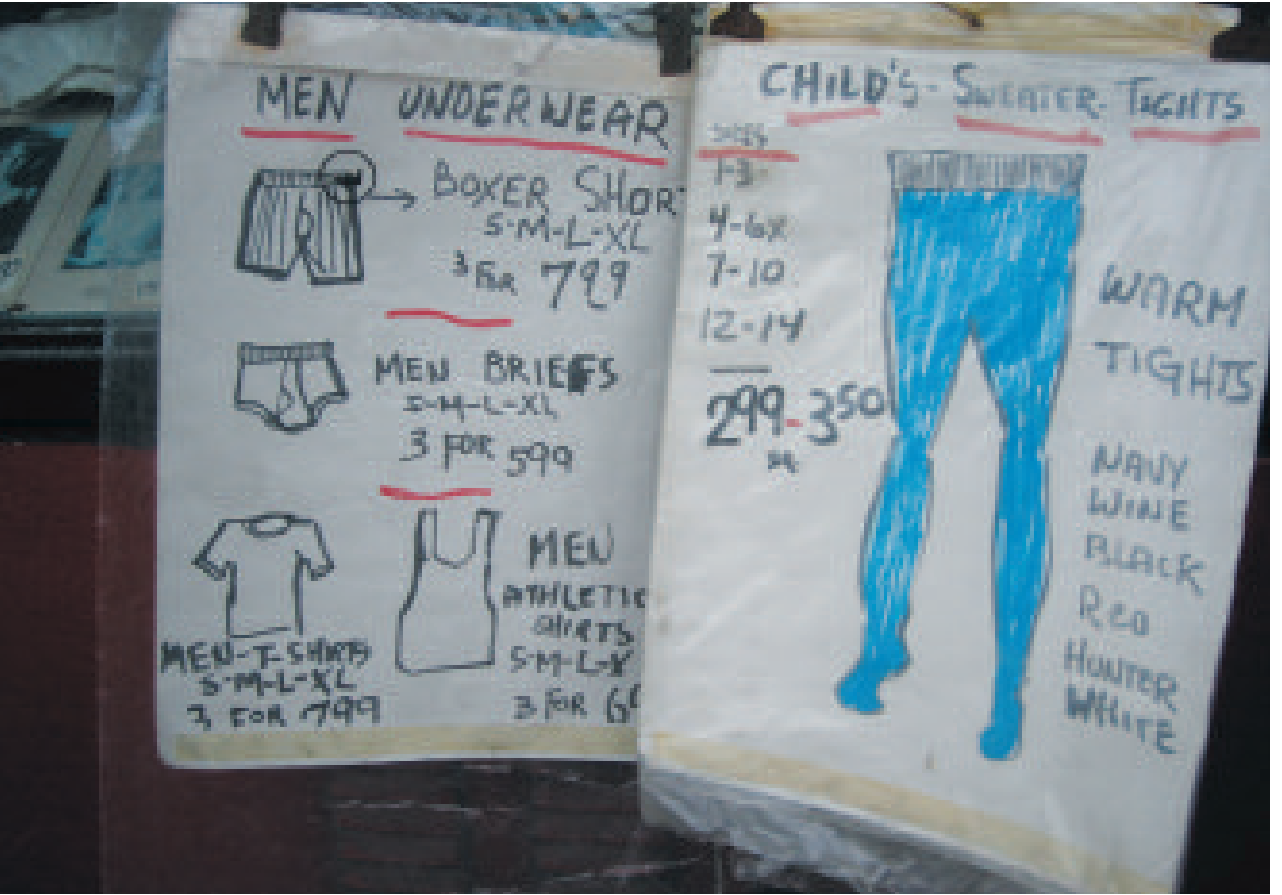 MEN UNDERWEAR
BOXER SHORT
S-M-L-XL
3 FOR 799
MEN BRIEFS
S-M-L-XL
3 FOR 599
MEN-T-SHIRTS
S-M-L-XL
3 FOR 799
MEN
ATHLETIC
SHIRTS
S-M-L-X
3 FOR
CHILD'S-SWEATER-TIGHTS
SIZES
1-3
4-6X
7-10
12-14
299-350
WARM
TIGHTS
NAVY
WINE
BLACK
RED
HUNTER
WHITE